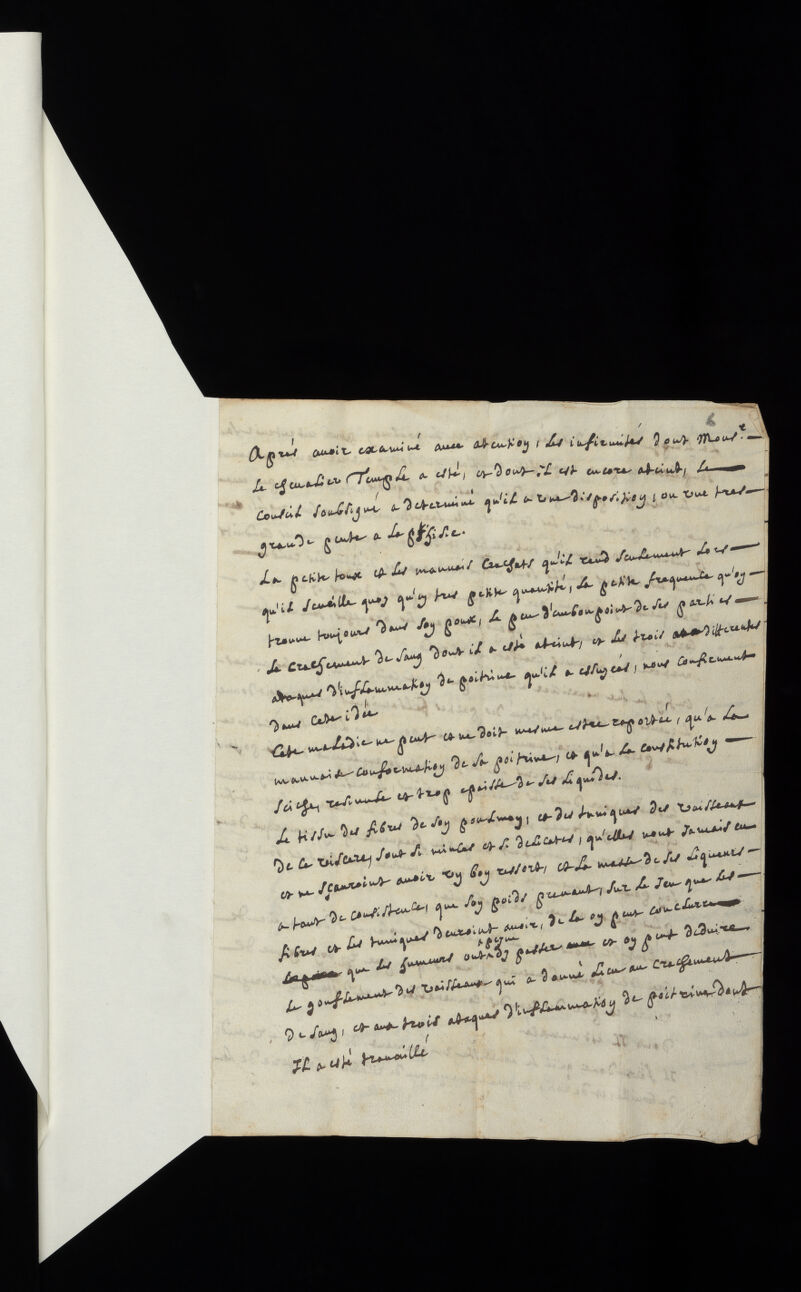 6
Aprés auoir examiné auec atention, les infirmités dont Mons.r
le cheualier Temple a esté, et dont il est encore ateint, le
conseil soubsigné a determiné qu'il a vne disposition, ou vne tres
grande pente a la phtisie.
La petite toux et les mauuais crachats qu'il rend seulement lors
qu'il s'eueille quoy qu'en tres petite quantité, la petite frequence qu'on
trouue toujours dans son poux, le peu d'embonpoint de ses parties
le crachement de sang dont il a esté ateint, et les trois differentes
ataques d'inflammation de poitrine qu'il a essuyées, nous confirment
dans cete idée
Cete maladie ne peut et ne doit mesme estre raportée, qu'a la
mauuaise conformation de sa poitrine, et qu'a la constitution
seiche, et trop epaisse de ses liquides.
Le tissu des fibres de son poulmon, et des tuniques des vaisseaux
de ce viscere, sont si minces et si delicates, qu'elles n'ont jamais eu
et ne sçauroint auoir vn bon ressort, et la masse de ses liqueurs
a tant de consistence, que son poids preuaut, sur le jeu que les
fibres et les tuniques deuroint auoir, de la on peut conclurre
que les humeurs ont a peyne d'y passer et on peut deduire
le gonflement des vaisseaux qui a donné lieu au crachement
de sang, et aux trois ataques d'inflammation de poitrine dont
Il a esté trauaillé